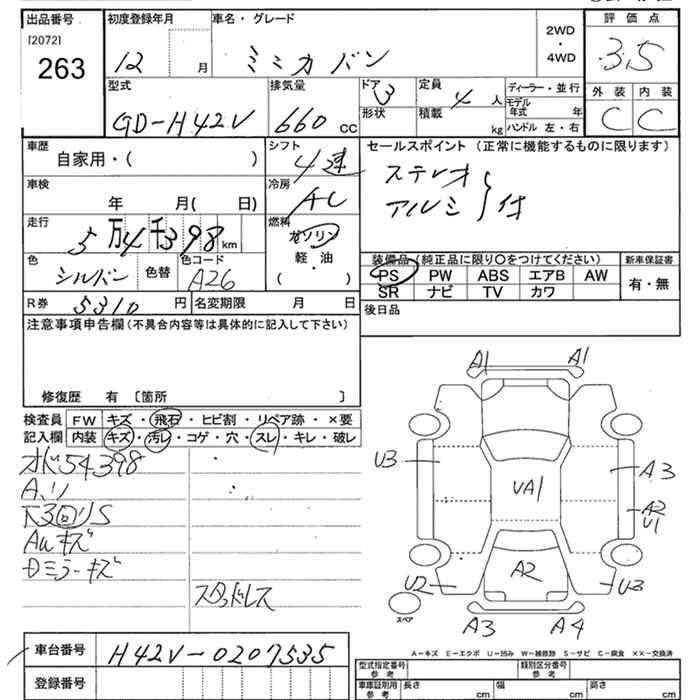 出品番号 初度登録年月 車名・グレード 2WD・4WD 評価点
[2072]
263 12 月 ミニカバン 3.5
型式 排気量 ドア 3 定員 4 人 ディーラー・並行 外装 内装
GD-H42V 660 cc 形状 積載 kg モデル年式 年 C C
ハンドル 左・右
車歴 シフト セールスポイント (正常に機能するものに限ります)
自家用・( ) 4速 ステレオ
車検 冷房 アルミ 付
年 月( 日) AC
走行 燃料
5万4千398km ガソリン
色 色コード 軽・油 装備品 (純正品に限り○をつけてください) 新車保証書
シルバー 色替 A26 ・( ) PS PW ABS エアB AW 有・無
SR ナビ TV カワ
R券 5310 円 名変期限 月 日 後日品
注意事項申告欄(不具合内容等は具体的に記入して下さい)
修復歴 有 〔箇所 〕
検査員 FW キズ・飛石・ヒビ割・リペア跡・×要
記入欄 内装 キズ・汚レ・コゲ・穴・スレ・キレ・破レ
54398
キズ
ミラーキズ
スタッドレス
A1 A1
U3 A3
UA1 A2
U1
A2
U2 U3
スペア
A3 A4
A-キズ E-エクボ U-凹み W-補修跡 S-サビ C-腐食 XX-交換済
車台番号 H42V-0207535
登録番号
型式指定番号 参考 類別区分番号 参考
車庫証明用 参考 長さ cm 幅 cm 高さ cm